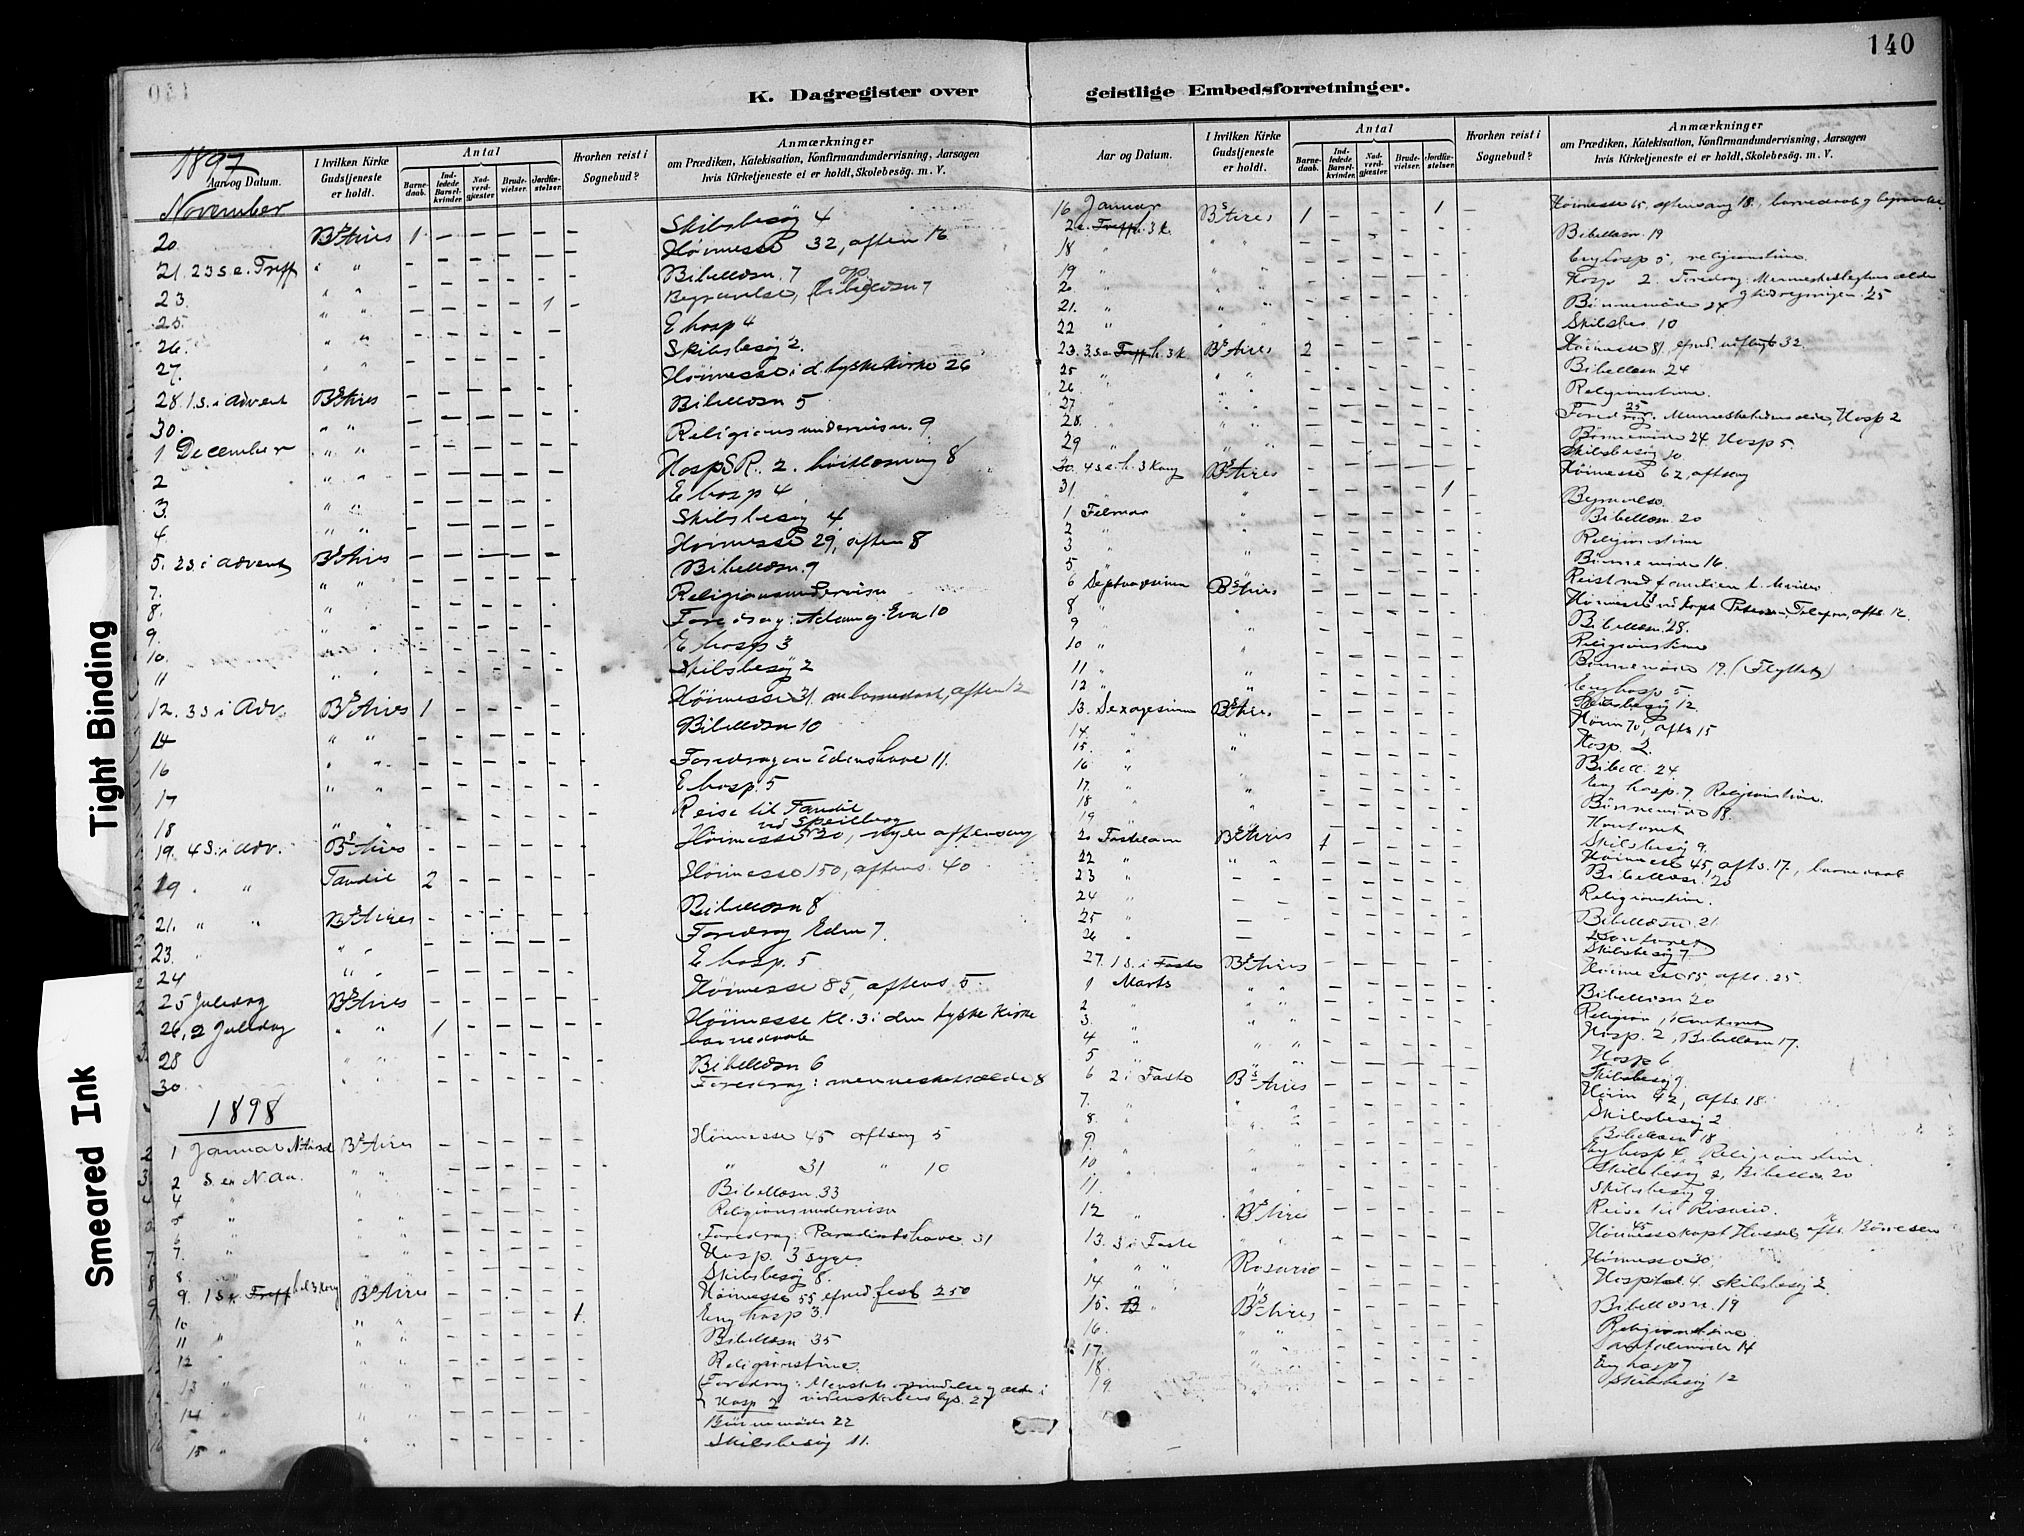 140
K. Dagregister over geistlige Embedsforretninger.
1897
Aar og Datum.
I hvilken Kirke Gudstjeneste er holdt.
Antal
Barnedaab.
Indledede Barselkvinder.
Nadverdgjæster
Brudevielser.
Jordfæstelser.
Hvorhen reist i Sognebud?
Anmærkninger
om Prædiken, Katekisation, Konfirmandundervisning, Aarsagen
hvis Kirketjeneste ei er holdt, Skolebesøg. m. V.
November
20 Bs Aires 1 – – – – – Skibsbesøg 4
21. 23 s. e. Treff " " Høimesse 32, aften 16
23. " " Bibellæsn. 7
25. " " 1 – Begravelse, bibellæsn 7
26. " " E hosp 4
27. " " Skibsbesøg 2.
28. 1 s. i Advent Bs Aires Høimesse i d. tyske kirke 26
30. " " Bibellæsn 5
1 December " " Religionsundervisn. 9
2 " " Hosp S.R. 2. høitlæsning 8
3. " " E hosp 4
4. " " Skibsbesøg 4
5. 2 s. i Advent Bs Aires Høimesse 29, aften 8
7. " " Bibellæsn. 9
8. " Religionsundervisn
9. " " Foredrag: Adam og Eva 10
10. " E hosp 3
11 " " Skibsbesøg 2
12. 3 s i Adv. Bs Aires 1 Høimesse 31. barnedaab, aften 12
14 " " Bibellæsn 10
16 " " Foredrag om Edens have 11.
17 " " E hosp. 5
18 " " Reise til Tandil
19. 4 S. i Adv. Bs Aires Høimesse ved Speilberg 20, ingen aftensang
19 " " Tandil 2 Høimesse 150, aftens. 40
21. " " Bs Aires Bibellæsn 8
23. " " " Foredrag Eden 7.
24 " " E hosp. 5
25 Juledag Bs Aires Høimesse 85, aftens. 5
26, 2 Juledag " " 1 Høimesse Kl. 3 i den tyske Kirke
barnedaab
28 " " Bibellæsn 6
30 " " Foredrag: menneskets ælde 8
1898
1 Januar Bs Aires Høimesse 45 aftsag 5
2 S. e. N. Aa. " " " 31 " 10
4 " Bibellæsn. 33
5 " " " Religionsundervisn
6 " " " Foredrag: Paradisets have. 31
7. " " " Hosp. 3 syge
8 " " " Skibsbesøg 8.
9. 1 S. e. Treff hel 3 kong Bs Aires Høimesse 55 efmd. fest 250
10 " " 1. Eng hosp 3.
11 " " " Bibellæsn 35
12 " " " Religionstime.
13 " " Foredrag: Menskets oprindelse og ælde i
Hosp 2 videnskabens lys. 27
14 " " Bønnemøde 22
15 " " " Skibsbesøg 11.
Aar og Datum.
I hvilken Kirke Gudstjeneste er holdt.
Antal
Barnedaab.
Indledede Barselkvinder.
Nadverdgjæster
Brudevielser.
Jordfæstelser.
Hvorhen reist i Sognebud?
Anmærkninger
om Prædiken, Katekisation, Konfirmandundervisning, Aarsagen
hvis Kirketjeneste ei er holdt, Skolebesøg. m. V.
16 Januar Bs Aires 1 – – – 1 – Høimesse 65, aftensang 18, barnedaab og begravelse
2 e. Treff h. 3 k.
18 " " Bibellæsn. 19
19 " " " Eng hosp 5, religionstime
20. " " " Hosp 2. Foredrag: Menneskeslegtens ælde
og tidregningen. 25
21. " " Bønnemøde 24
22 " Skibsbes 10
23. 3. s. e. Treff h. 3 k Bs Aires 2 Høimesse 81, 32
25 " " " Bibellæsn 24
26 " " " Religionstime.
27 " " Foredrag 25. Menneskehedens ælde, Hosp 2
28. " Bønnemøde 24. Hosp 5.
29 " " Skibsbesøg 10
30. 4 s. e. h. 3 kong Bs Aires Høimesse 62, aftsag
31. " " 1 Begravelse
1 Februar " Bibellæsn. 20
2 " " Religionstime
3 " " Bønnemøde 16.
5. " Reist med familien
6 Septuagesima Bs Aires Høimesse 75 ved kapt Petersen, afts. 12
8 " " Bibellæsn. 28.
9 " " Religionstime
10 " " Bønnemøde 19. (Flyttet)
11 " " Eng hosp 5.
12 " " Skibsbesøg 12.
13. Sexagesima Bs Aires Høim 70, afts 15
14. " " Hosp. 2.
15. " " Bibell. 24
16 " Eng hosp. 7. Religionstime.
17. " Bønnemøde 18.
18 " Kontoret
19 " " Skibsbesøg 9.
20 Fastelavn Bs Aires 1 Høimesse 45, afts. 17., barnedaab
22 " " " Bibellæsn. 20
23 " Religionstime.
24 " Bibellæsn 21.
25 " Kontoret
26 " Skibsbesøg 7
27. 1 S. i Faste Bs Aires Høimesse 55, afts. 25.
1 Marts " " Bibellæsn 20
2 " " Religion, Kontoret
3. " " Hosp. 2, Bibellæsn 17.
4 " " " Hosp 6
5 " " Skibsbesøg 9.
6 2 i Faste Bs Aires Høim 42, afts. 18.
7. " " " Skibsbesøg 2
8. " " " Bibellæsn 18
9. " " " Eng hosp 4, Religionstime.
10 " " Skibsbesøg 2, Bibellæs. 20
11. " " Skibsbesøg 9
12 " Bs Aires Reise til Rosario.
13. 3 i Faste " " Høimesse 45 kapt Hassel, afts. Børresen
" " " Rosario Høimesse 30,
14. " " Hospital 4. skibsbesøg 2.
15. " Bs Aires Bibellæsn. 19
16. " " Religionstime.
17. " " 14
18. " Eng hosp 7
19. " Skibsbesøg 12
Tight Binding
Smeared Ink